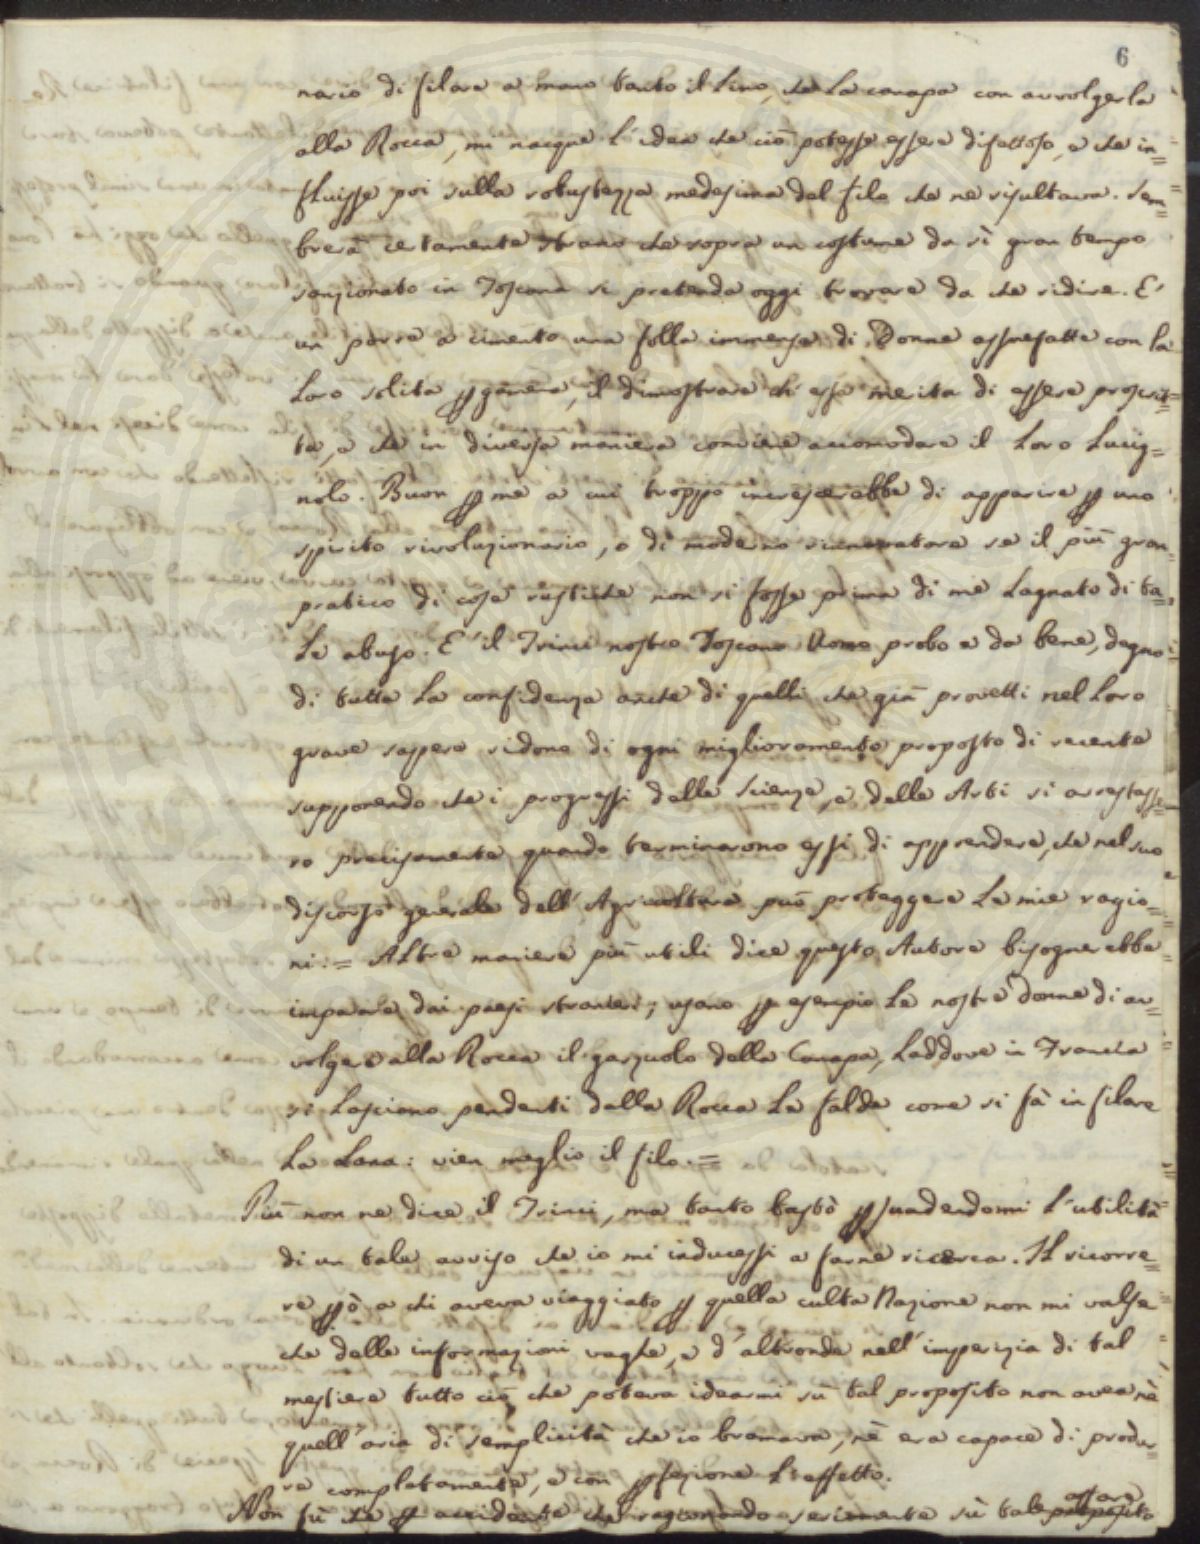 6
nario di filare a mano tanto il Lino, che La canapa con avvolgerla
alla Rocca, mi nacque l'idea che ciò potesse essere difettoso, e che in=
fluisse poi sulla robustezza medesima del filo che ne risultava. Sem=
brerà certamente strano che sopra un costume da sì gran tempo
sanzionato in Toscana si pretenda oggi trovare da che ridire. E'
un porre a cimento una folla immensa di Donne assuefatte con la
Loro solita, il dimostrare ch'essa merita di essere proscrit=
ta, e che in diversa maniera conviene accomodare il Loro Lucig=
nolo. Buon p me a cui troppo increscerebbe di apparire p uno
spirito rivoluzionario, o di moderno rinnovatore se il più gran
pratico di cose rustiche non si fosse prima di me Lagnato di ta=
Le abuso. E' il Trinci nostro Toscano Uomo probo e da bene, degno
di tutta La confidenza anche di quelli che già provetti nel Loro
grave sapere ridono di ogni miglioramento proposto di recente
supponendo che i progressi delle Scienze, e delle Arti si arrestasse=
ro precisamente quando terminarono essi di apprendere, che nel suo
discorso generale dell'Agricoltura può proteggere Le mie ragio=
ni:= Altre maniere più utili dice questo Autore bisognerebbe
imparare dai paesi stranieri; usano p esempio Le nostre donne di av=
volgere alla Rocca il garzuolo della Canapa, Laddove in Francia
si Lasciano pendenti dalla Rocca La falda come si fà in filare
La Lana: vien meglio il filo.=
Più non ne dice il Trinci, ma tanto bastò psuadendomi L'utilità
di un tale avviso che io mi inducessi a farne ricerca. Il ricorre=
re pò a chi aveva viaggiato p quella culta Nazione non mi valse
che delle informazioni vaghe, e d'altronde nell'imperizia di tal
mestiere tutto ciò che poteva idearmi sù tal proposito non avea nè
quell'aria di semplicità che io bramava, nè era capace di produr=
re completamente, e con pfezione L'effetto.
Non fù che p accidente che ragionando seriamente sù tale proposito
affare